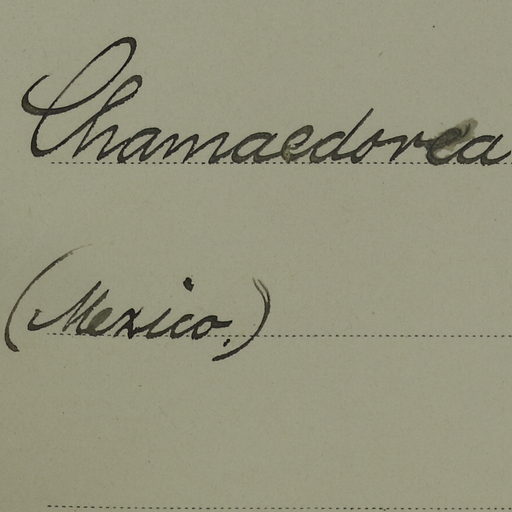 Chamaedorea
(Mexico.)